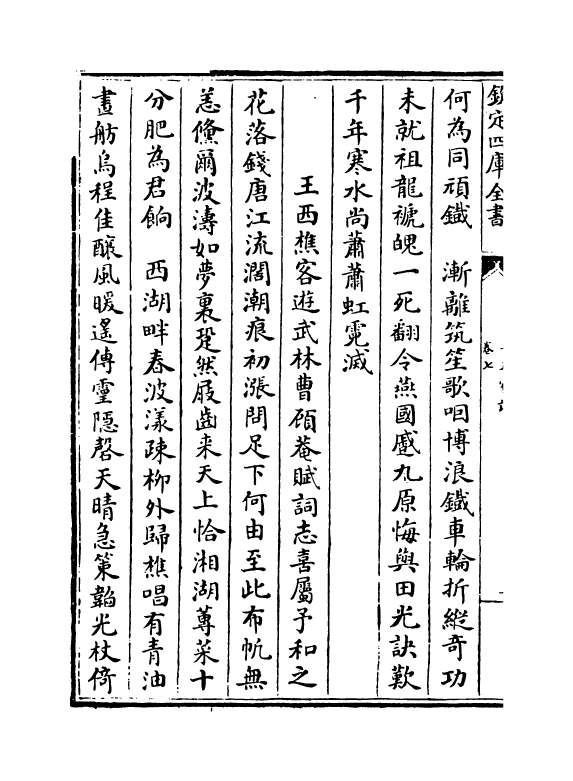 欽定四庫全書
卷七
何為同頑鐵　漸離筑笙歌咽博浪鐵車輪折縱奇功
未就祖龍褫魄一死翻令燕國蹙九原悔與田光訣歎
千年寒水尚蕭蕭虹霓滅
王西樵客遊武林曹顧菴賦詞志喜屬予和之
花落錢唐江流濶潮痕初漲問足下何由至此布帆無
恙儵爾波濤如夢裏跫然屐齒来天上恰湘湖蓴菜十
分肥為君餉　西湖畔春波漾疎柳外歸樵唱有青油
畫舫烏程佳釀風暖遙傳靈隱磬天晴急策韜光杖倚